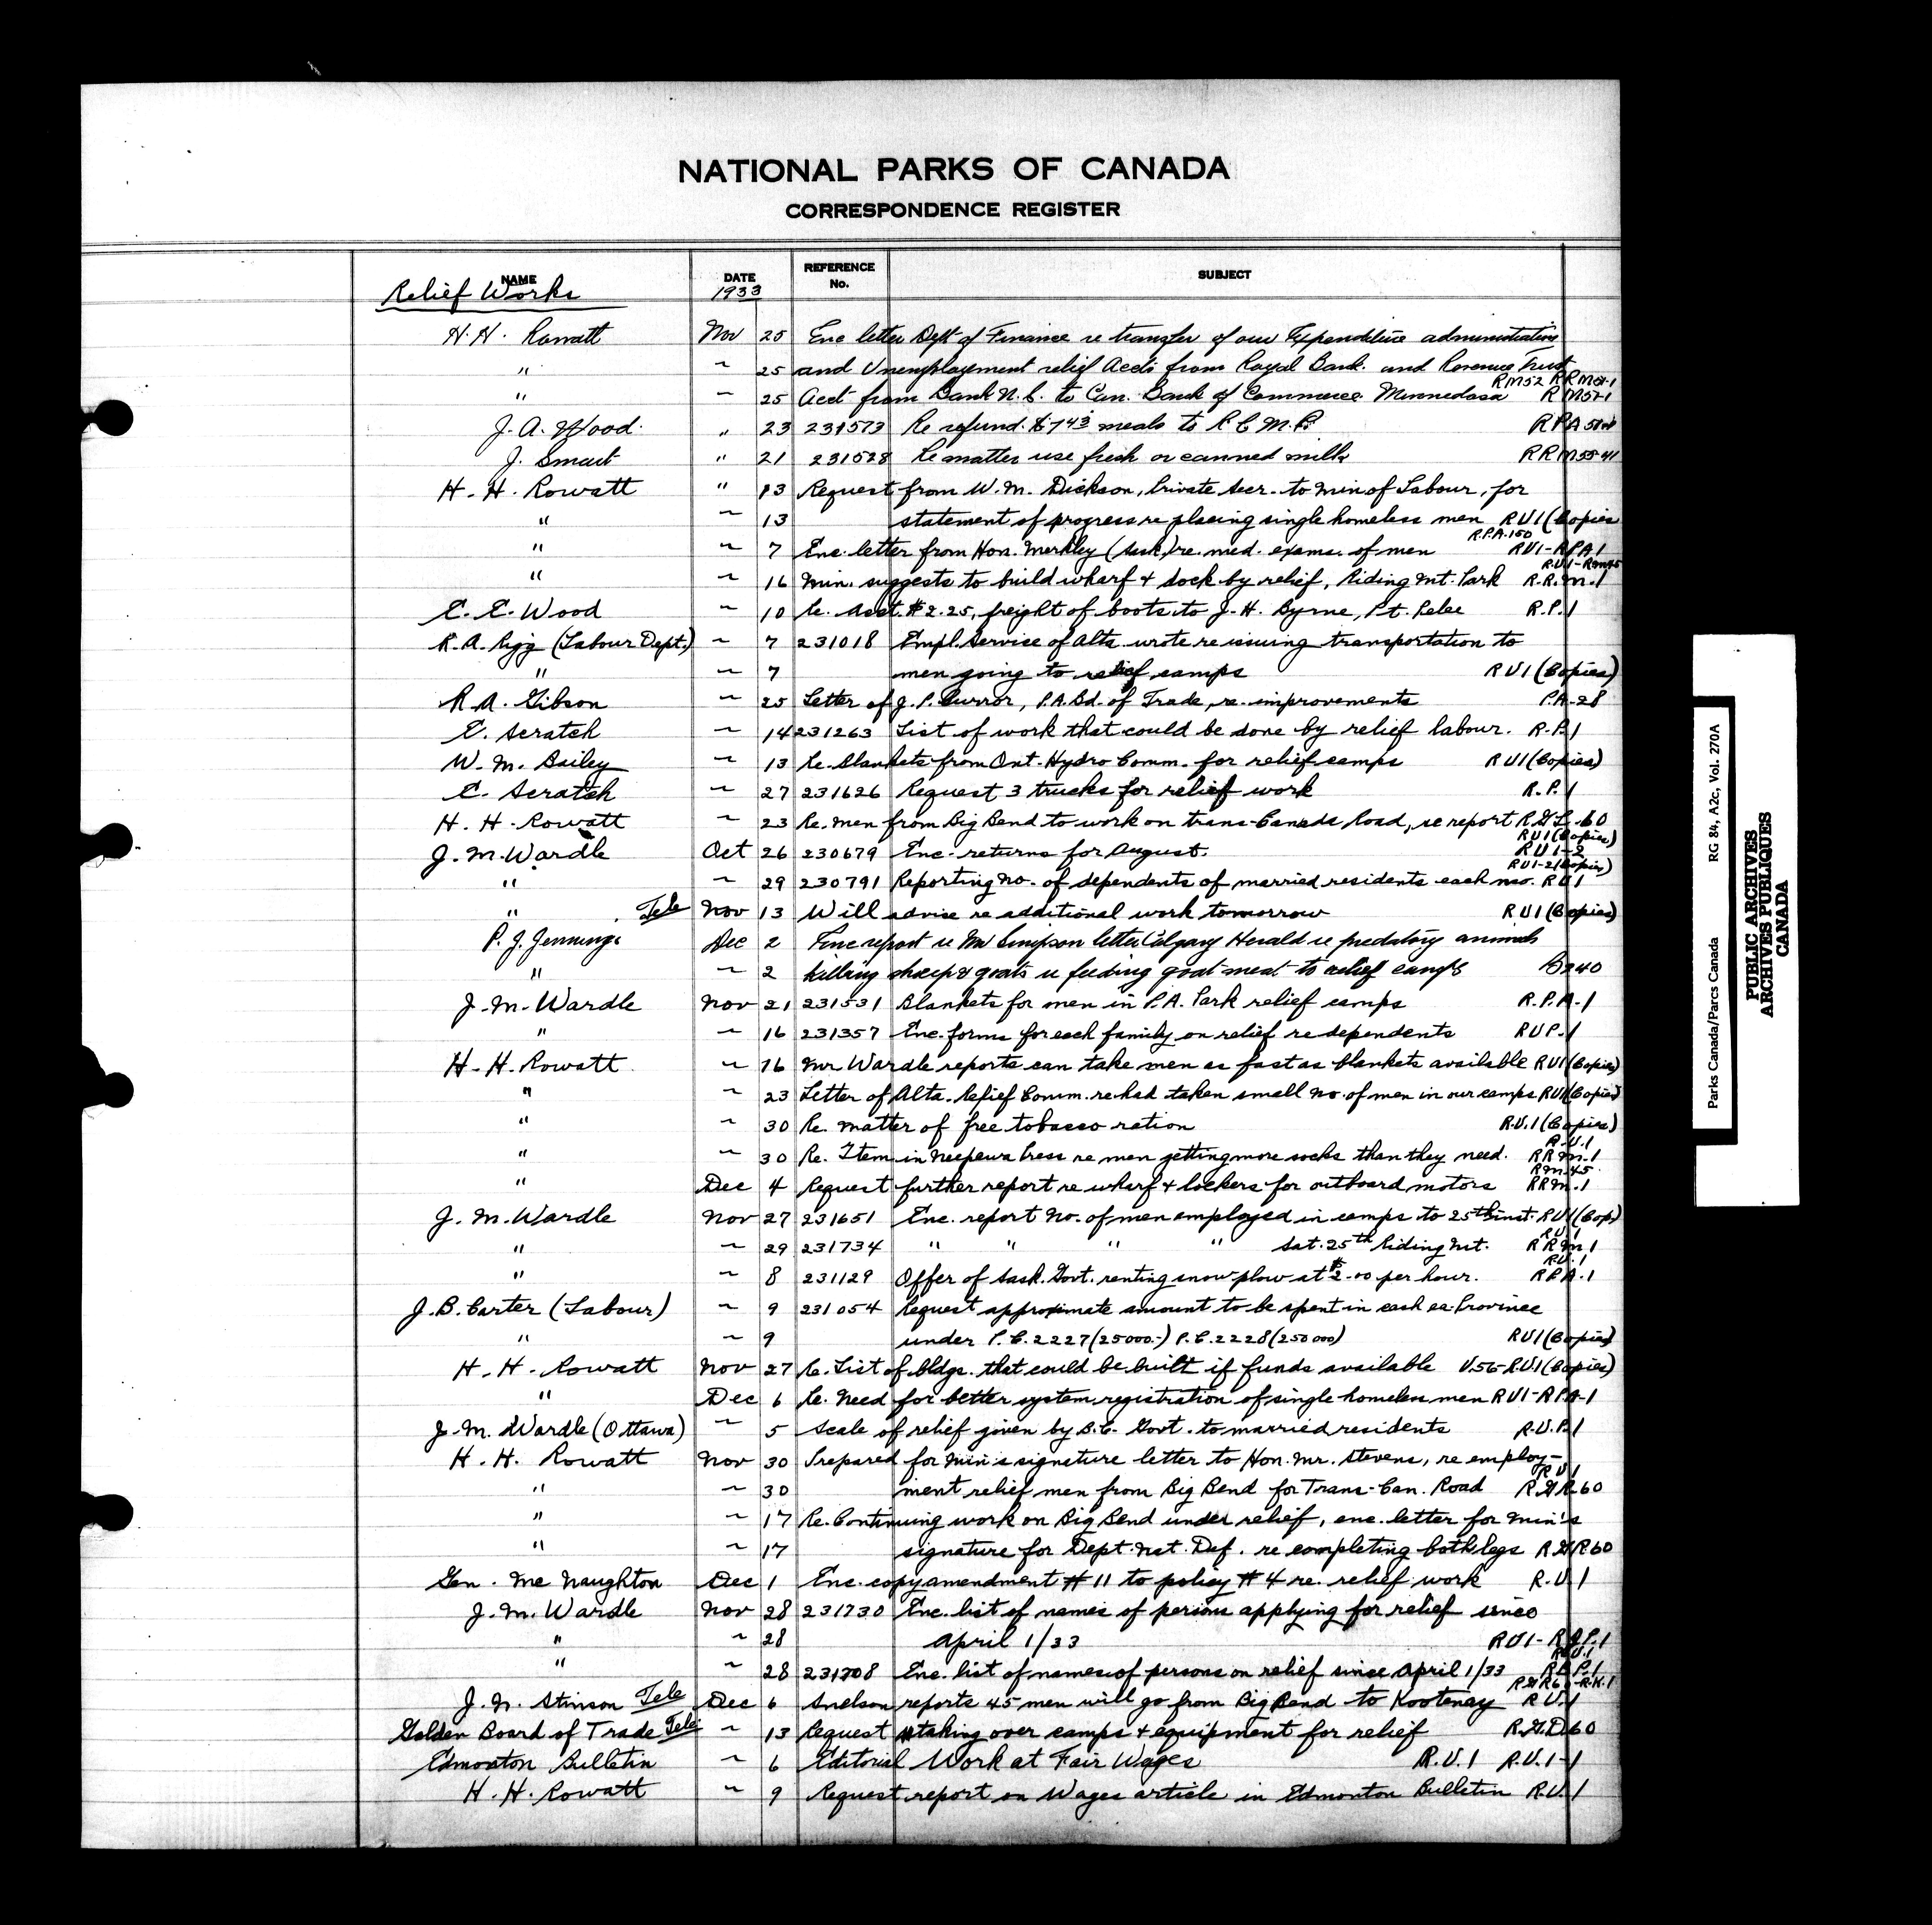 NATIONAL PARKS OF CANADA
CORRESPONDENCE REGISTER
NAME DATE REFERENCE No. SUBJECT
Relief Works 1933
H. H. Rowatt Nov 25 Enc letter Dept of Finance re transfer of our Expenditure administration
" ~ 25 and Unemployment relief Accts from Royal Bank. and Revenue Trust
RM52 RRM51-1
" ~ 25 Acct from Bank N.S. to Can. Bank of Commerce Minnedosa RM51-1
J. A. Wood " 23 231573 Re refund $7 43 meals to R C M P.
J. Smart " 21 231528 Re matter use fresh or canned milk RRM55-41
H. H. Rowatt " 13 Request from W. M. Dickson, Private Secr. to Min of Labour, for
" ~ 13 statement of progress re placing single homeless men RU1 (Copies
R.P.A.150
" ~ 7 Enc. letter from Hon. Merkley (Sask) re. med. exams. of men RU1-RPA1
" ~ 16 Min. suggests to build wharf & dock by relief, Riding Mt. Park R.R.M.1
E. E. Wood ~ 10 Re. Acct. $2.25, freight of boots to J. H. Byrne, Pt. Pelee R.P.1
R. A. Rigg (Labour Dept.) ~ 7 231018 Empl. Service of Alta. wrote re issuing transportation to
" ~ 7 men going to relief camps RU1 (Copies)
R. A. Gibson ~ 25 Letter of J. P. Curror, P.A. Bd. of Trade, re. improvements P.A-28
E. Scratch ~ 14 231263 List of work that could be done by relief labour. R.P.1
W. M. Bailey ~ 13 Re. Blankets from Ont. Hydro Comm. for relief camps RU1 (Copies)
E. Scratch ~ 27 231626 Request 3 trucks for relief work R.P.1
H. H. Rowatt ~ 23 Re. men from Big Bend to work on trans-Canada Road, re report
RU1 (Copies)
J. M. Wardle Oct 26 230679 Enc. returns for August. RU1-2
RU1-2 (Copies)
" ~ 29 230791 Reporting no. of dependents of married residents each mo. RU1
" Tele Nov 13 Will advise re additional work tomorrow RU1 (Copies)
P. J. Jennings Dec 2 Enc report re Mr Simpson letter Calgary Herald re predatory animals
" ~ 2 killing sheep & goats re feeding goat meat to relief camps B240
J. M. Wardle Nov 21 231531 Blankets for men in P.A. Park relief camps R.P.A-1
" ~ 16 231357 Enc. forms for each family on relief re dependents RUP.1
H. H. Rowatt ~ 16 Mr. Wardle reports can take men as fast as blankets available RU1 (Copies)
" ~ 23 Letter of Alta. Relief Comm. re had taken small no. of men in our camps RU1 (Copies)
" ~ 30 Re. matter of free tobacco ration R.U.1 (Copies)
R.U.1
" ~ 30 Re. Item in Neepawa Press re men getting more socks than they need. RRM.1
RM.45
" Dec 4 Request further report re wharf & lockers for outboard motors RRM.1
J. M. Wardle Nov 27 231651 Enc. report no. of men employed in camps to 25th inst. RU1 (Cop)
RU.1
" ~ 29 231734 " " " " Sat. 25th Riding Mt. RRM1
RU.1
" ~ 8 231129 Offer of Sask. Govt. renting snow plow at $2.00 per hour. RPA.1
J. B. Carter (Labour) ~ 9 231054 Request approximate amount to be spent in each ea. Province
" ~ 9 under P.C. 2227 (25000.-) P.C. 2228 (250000) RU1 (Copies)
H. H. Rowatt Nov 27 Re. List of bldgs. that could be built if funds available U.56-R.U.1 (Copies)
" Dec 6 Re. Need for better system registration of single homeless men RU1-RPA-1
J. M. Wardle (Ottawa) ~ 5 Scale of relief given by B.C. Govt. to married residents R.U.P.1
H. H. Rowatt Nov 30 Prepared for Min's signature letter to Hon. Mr. Stevens, re employ-
RU1
" ~ 30 ment relief men from Big Bend for Trans-Can. Road R.G.R.60
" ~ 17 Re. Continuing work on Big Bend under relief, enc. letter for Min's
" ~ 17 signature for Dept. Nat. Def. re completing both legs R.G.R.60
Gen. McNaughton Dec 1 Enc. copy amendment #11 to policy #4 re. relief work R.U.1
J. M. Wardle Nov 28 231730 Enc. list of names of persons applying for relief since
" ~ 28 April 1/33
RU.1
" ~ 28 231708 Enc. list of names of persons on relief since April 1/33
J. N. Stinson Tele Dec 6 Snelson reports 45 men will go from Big Bend to Kootenay R.U.1
Golden Board of Trade Tele ~ 13 Request taking over camps & equipment for relief
Edmonton Bulletin ~ 6 Editorial Work at Fair Wages R.U.1 R.U.1-1
H. H. Rowatt ~ 9 Request report on Wages article in Edmonton Bulletin R.U.1
Parks Canada/Parcs Canada RG 84, A2c, Vol. 270A
PUBLIC ARCHIVES
ARCHIVES PUBLIQUES
CANADA